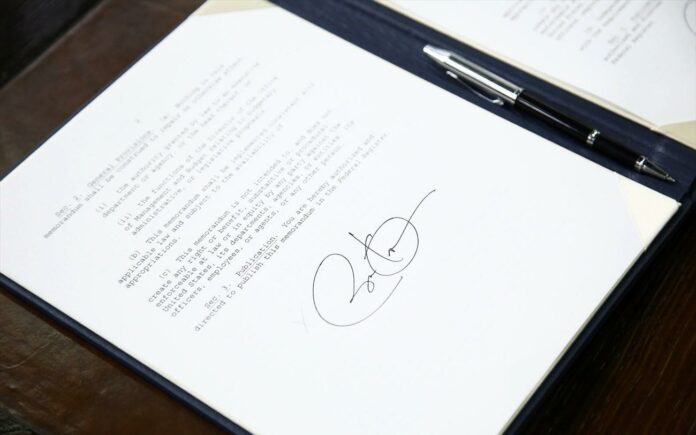 2
Sec. 2. General Provisions. (a) Nothing in this
memorandum shall be construed to impair or otherwise affect:
(i) the authority granted by law to an executive
department or agency, or the head thereof; or
(ii) the functions of the Director of the Office
of Management and Budget relating to budgetary,
administrative, or legislative proposals.
(b) This memorandum shall be implemented consistent with
applicable law and subject to the availability of
appropriations.
(c) This memorandum is not intended to, and does not,
create any right or benefit, substantive or procedural,
enforceable at law or in equity by any party against the
United States, its departments, agencies, or entities, its
officers, employees, or agents, or any other person.
Sec. 3. Publication. You are hereby authorized and
directed to publish this memorandum in the Federal Register.